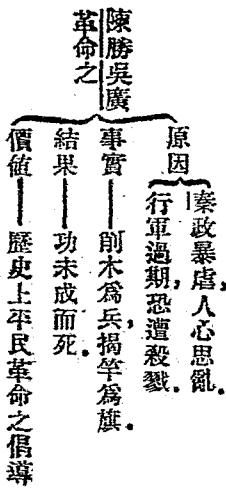 陳勝吳廣
革命之
原因
秦政暴虐,人心思亂.
行軍過期,恐遭殺戮.
事實——削木爲兵,揭竿爲旗.
結果——功未成而死.
價値——歷史上平民革命之倡導